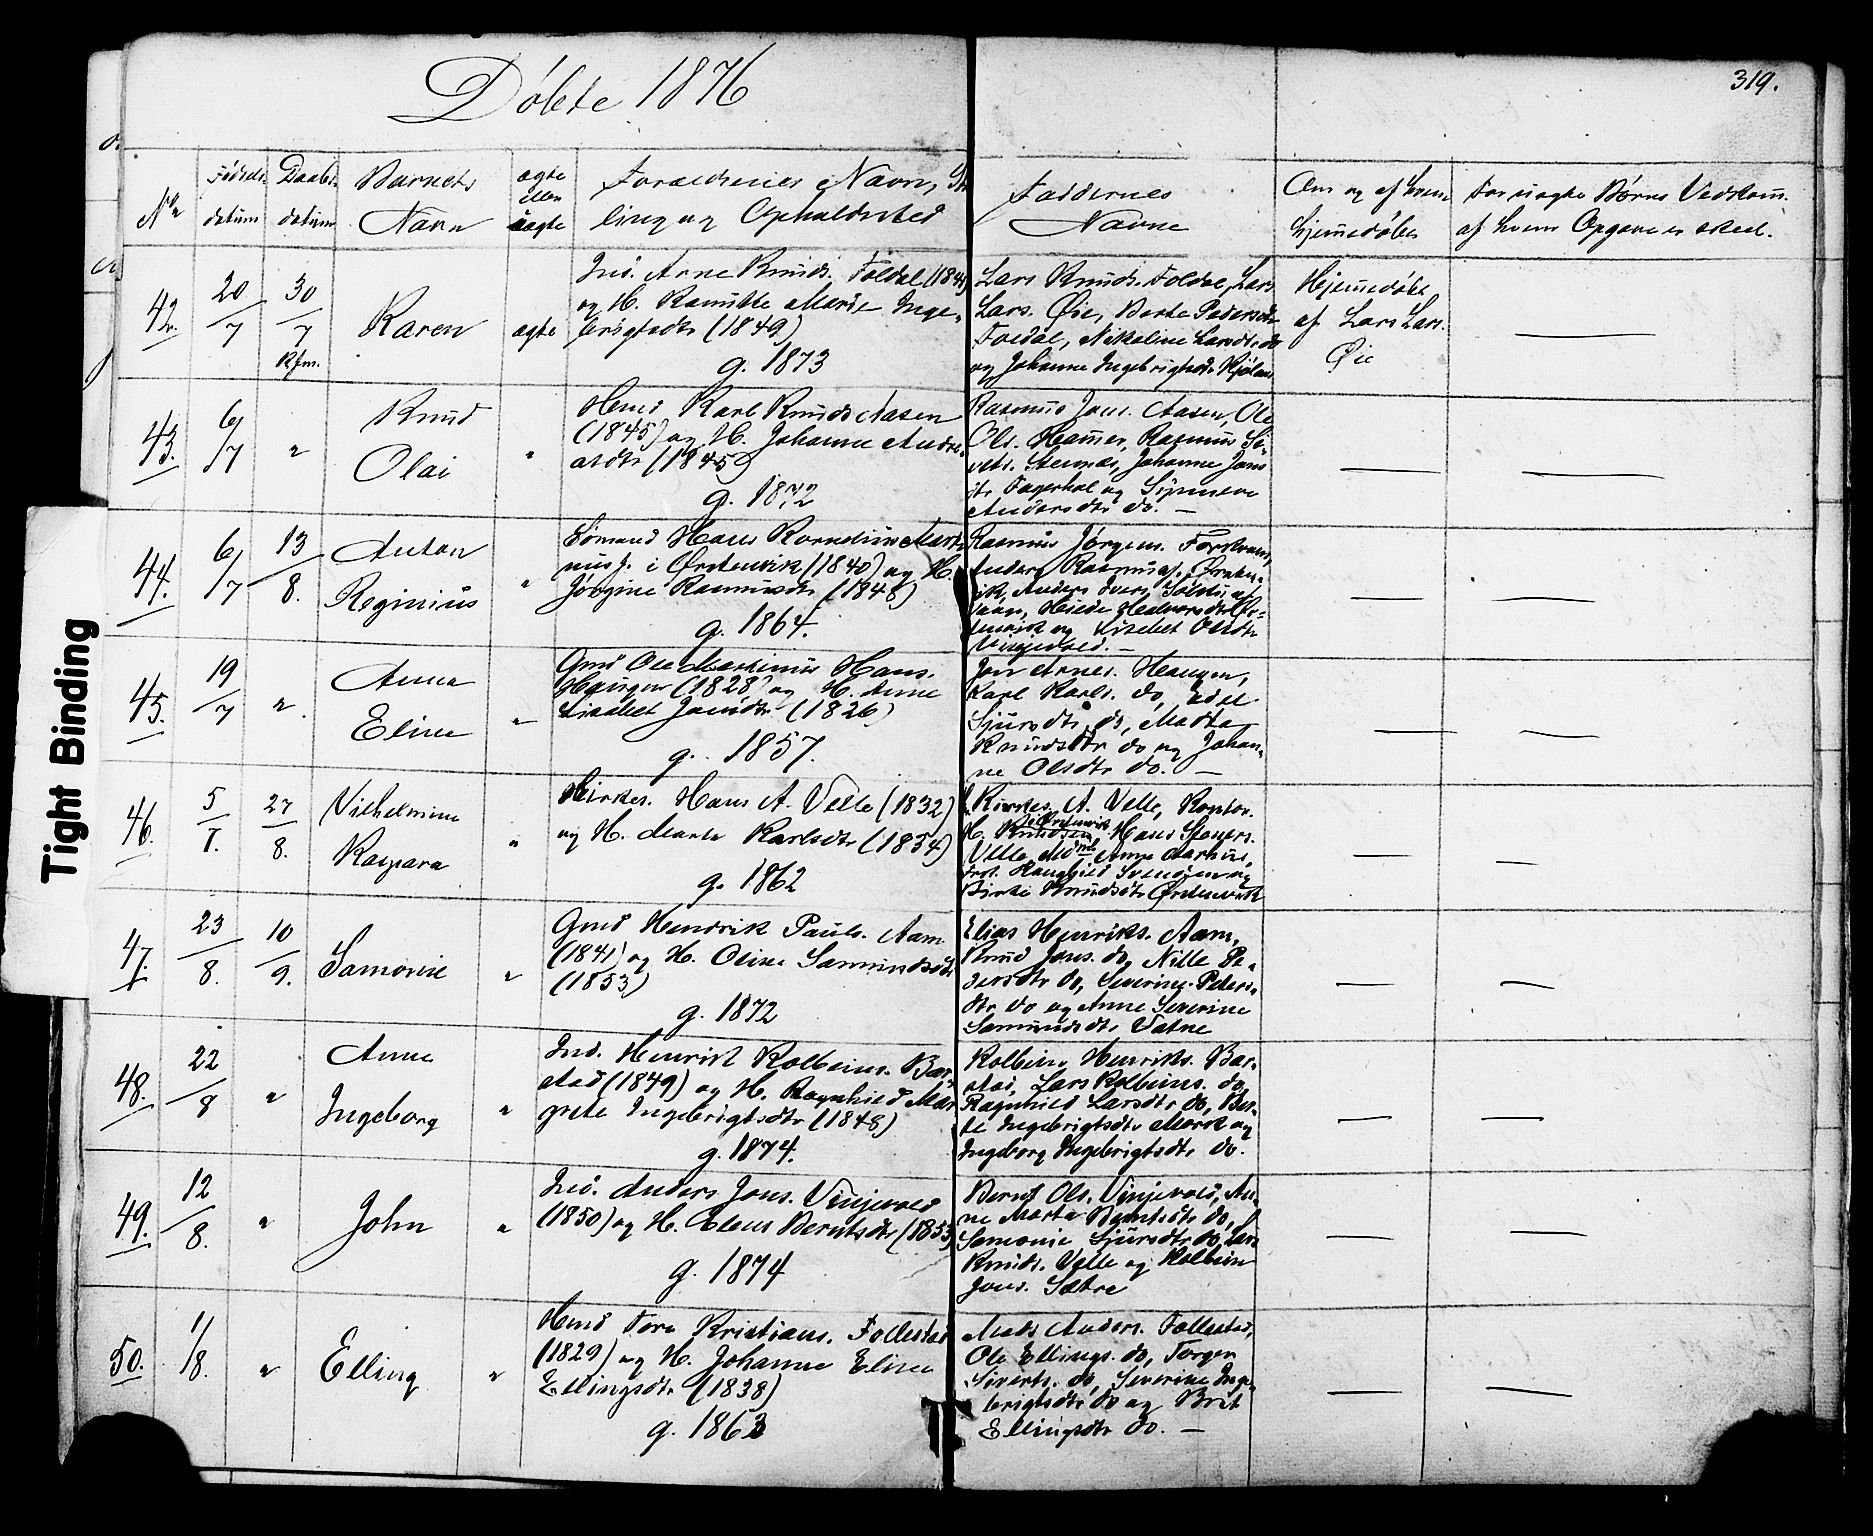 Døbte 1876
319.
No
Fødsels datum
Daabs datum
Barnets Navn
ægte eller uægte
Forældrenes Navn, St
ling og Opholdssted
Faddernes Navne
Om og af hvem hjemmedøbt
For uægte Børns Vedkom.
af hvem Opgave er skeet.
42.
20/7
30/7
Kfm.
Karen
ægte
Ind. Arne Knuds. Foldal (184
og H. Marie Inge-
brigtsdtr (1849)
g. 1873
Lars Knuds. Foldal, Lars
Lars. Øie, Berte Pedersdtr
Foldal, Nikoline Larsdtr do
og Johanne Ingebrigtsdtr
Hjemmedøbt
af Lars Lars.
Øie
43.
6/7
"
Knud
Olai
"
Hmd Karl Knuds Aasen
(1845) og H. Johanne Andre-
asdtr (1845)
g. 1872
Rasmus Jons. Aasen, Ole
Ols. Hamer, Rasmus Si-
verts. Johanne Jons
dtr og Synneve
Andersdtr do. —
44.
6/7
13/8.
Anton
Reginius
"
Sømand Hans Kornelius Mart-
nus J. i Ørstenvik (1840) og H.
Jørgine Rasmusdtr (1848)
g. 1864.
Rasmus Jørgens.
Anders Rasmus
og Lisebet Olsdtr
Vinjevold. —
45.
19/7
"
Anna
Eline
"
Gmd Ole Martinus Hans.
Haugen (1828) og H. Anne
Lisabet Jonsdtr (1826)
g. 1857.
Jon Arnes. Haugen,
Karl Karls. do,
Sjursdtr do, Marta
Knudsdtr do og Johan-
ne Olsdtr do. —
46.
5/7.
27/8.
Vilhelmine
Kaspara
"
Kirkes. Hans A. Velle (1832)
og H. Marte Karlsdtr (1834)
g. 1862
Kirkes. A. Velle, Kontor.
H. Knudsen i Ørstenvik, Hans
Velle, Anne
Svendsen og
Knudsdtr Ørstenvik
47.
23/8.
10/9.
Samorine
"
Gmd Hendrik Pauls. Aam
(1841) og H. Oline Samundsdtr
(1853)
g. 1872
Elias Henriks. Aam,
Knud Jons. do, Nille Pe-
dersdtr do, Severine Peters-
dtr do og Anne Severine
Samundsdtr Vatne
48.
22/8
"
Anne
Ingeborg
"
Ind. Henrik Kolbeins. Bar-
stad (1849) og H. Ragnhild Mar-
grete Ingebrigtsdtr (1848)
g. 1874.
Kolbein Henriks. Bar-
stad, Lars Kolbeins. do,
Ragnhild Larsdtr do, Ber-
te Ingebrigtsdtr Mork og
Ingeborg Ingebrigtsdtr do.
49.
12/8.
"
John
"
Ind. Anders Jons. Vinjevold
(1850) og H. Elen Berntsdtr (1853)
g. 1874
Bernt Ols. Vinjevold, An-
ne Marta Berntsdtr do,
Samonie Sjursdtr do, Lars
Knuds. Velle og Kolbein
Jons. Sætre
50.
1/8.
"
Elling
"
Hmd Tore Kristians. Follestad
(1829) og H. Johanne Eline
Ellingsdtr (1838)
g. 1863
Mads Anders. Follestad,
Ole Ellings. do, Torger
Siverts. do, Severine Inge-
brigtsdtr do og Brit
Ellingsdtr do. —
Tight Binding